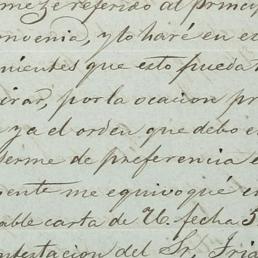 me he referido al princip
nvenia, y lo haré en e
nientes que esto pueda
rirar, por la ocacion pr
ya el orden que debo e
serme de preferencia e
ente me equivoqué en
able carta de U. fecha 5
ntestacion del Sr. Iria